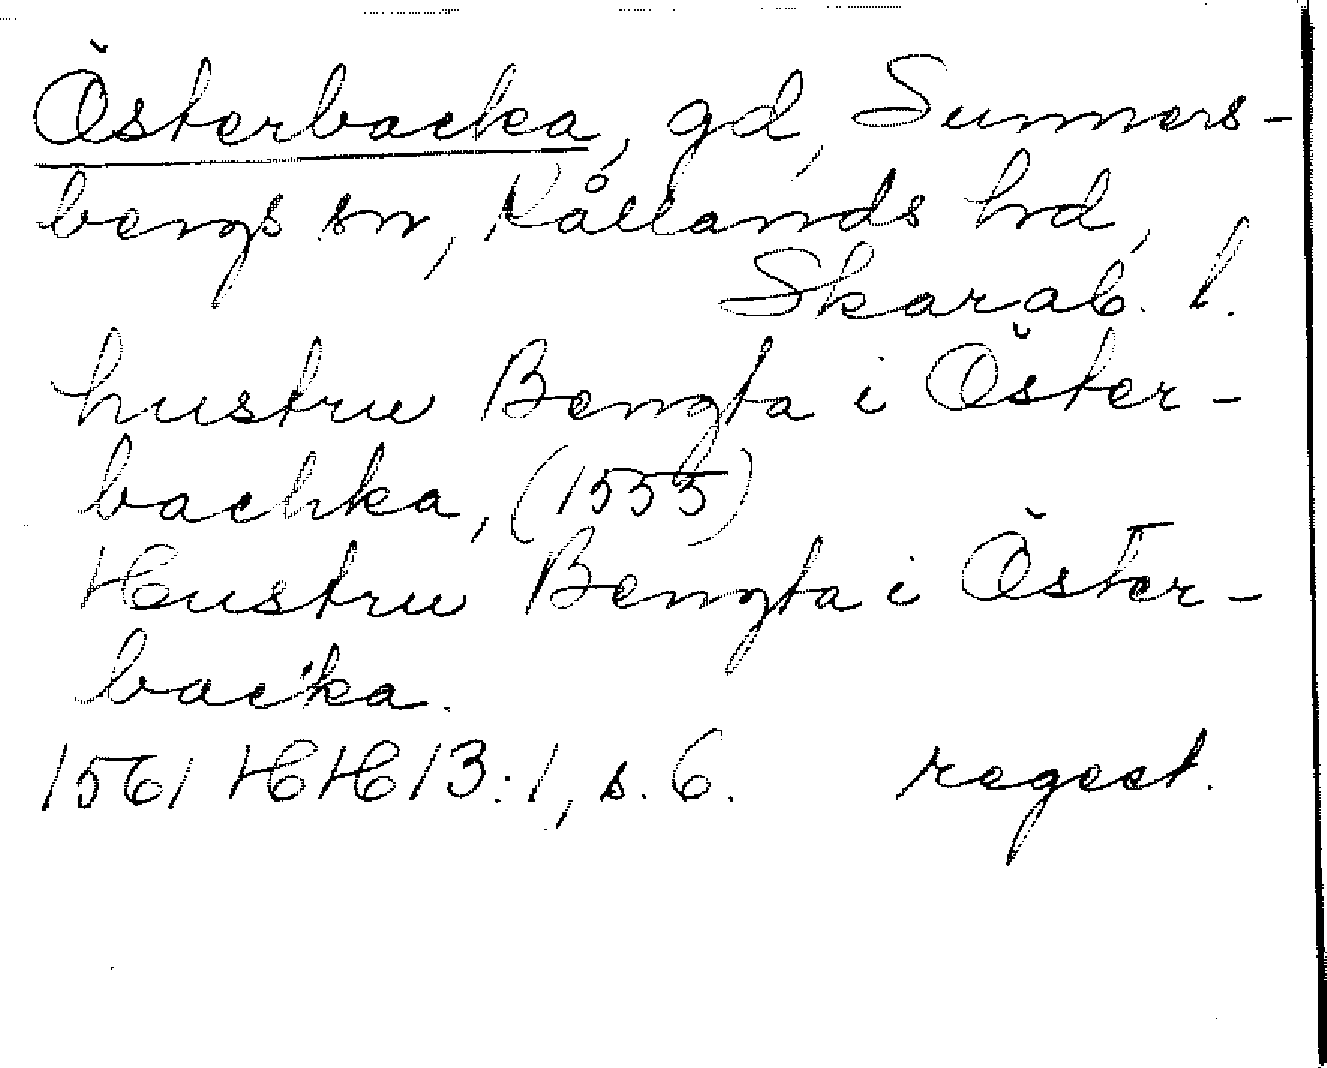 Österbacka, gd, Sunners-
bergs sn, Kållands hd,
Skarab. l.
hustru Bengta i Öster-
bachka, (1555)
Hustru Bengta i Öster-
backa.
1561 HH 13:1, s. 6. regest.